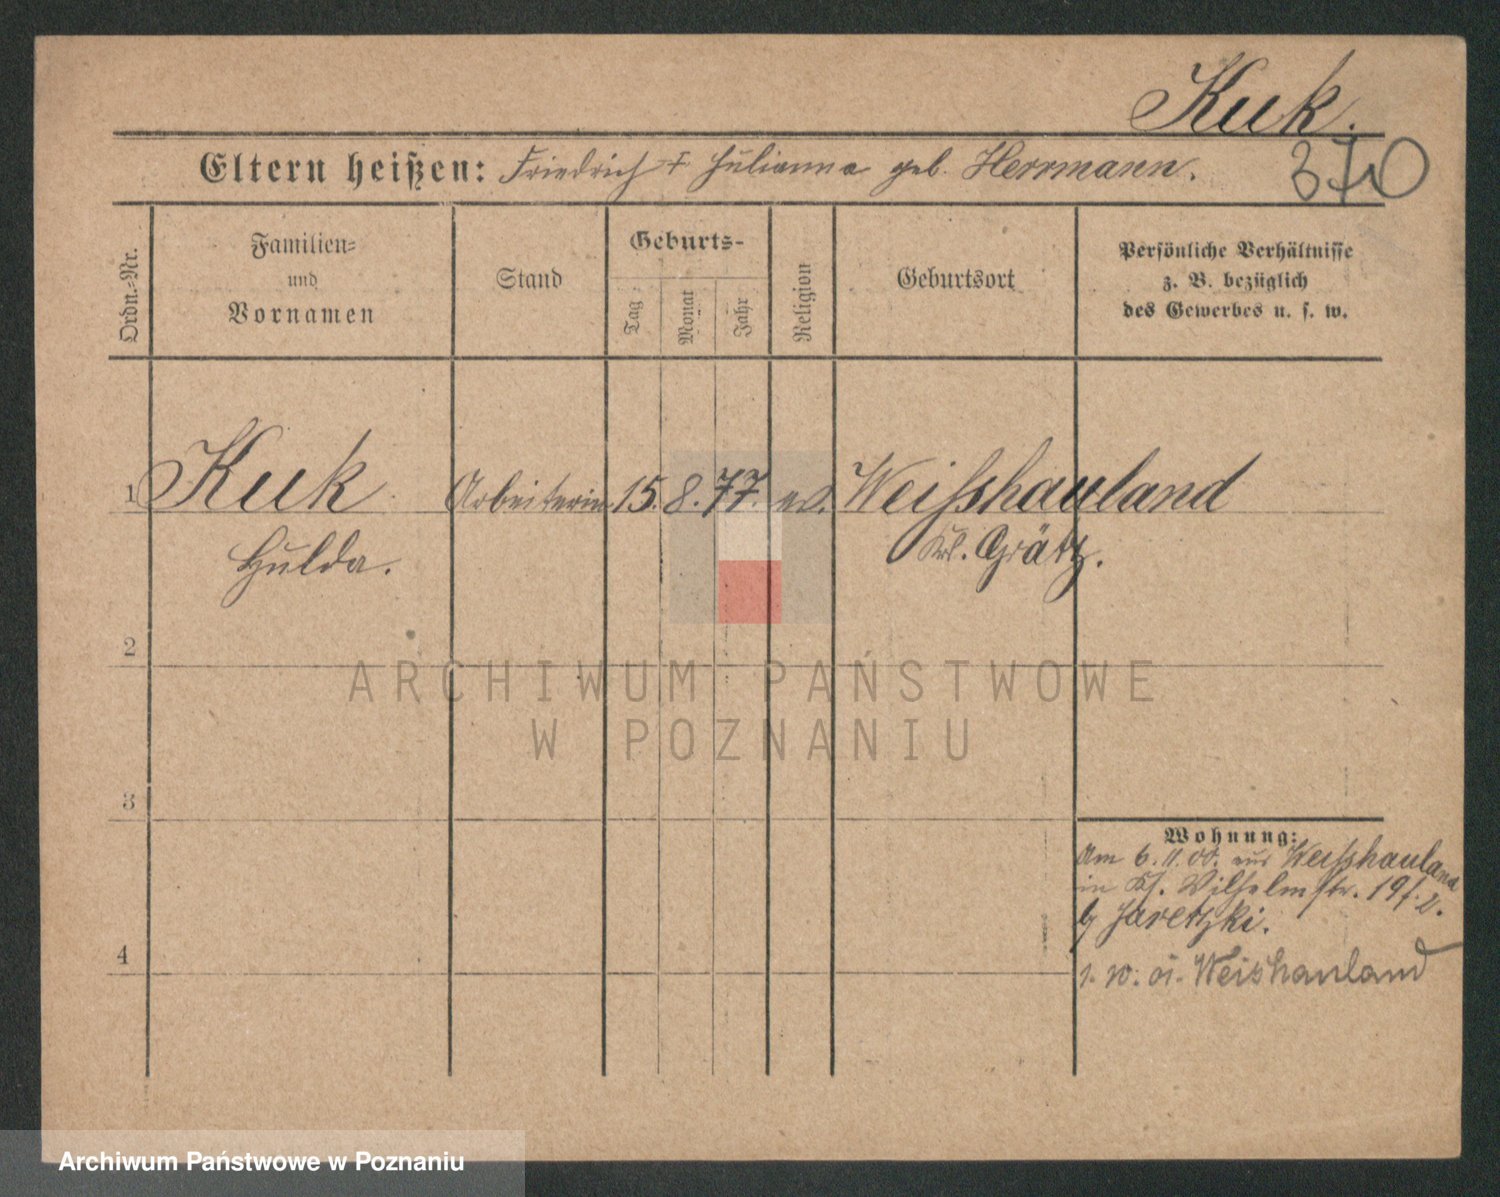 Kuk.
Eltern heißen: Friedrich + Julianna geb. Herrmann.
370
Ordn.-Nr.
Familien-
und
Vornamen
Stand
Geburts-
Tag
Monat
Jahr
Religion
Geburtsort
Persönliche Verhältnisse
z. B. bezüglich
des Gewerbes u. s. w.
1 Kuk. Arbeiterin. 15. 8. 77. ev. Weisshauland
Hulda. Krs. Grätz.
2
ARCHIWUM PAŃSTWOWE
W POZNANIU
3
Wohnung:
Am 6. 11. 00. aus Weisshauland
in Wilhelmstr. 19
b Jaretzki.
Weishauland
4
Archiwum Państwowe w Poznaniu